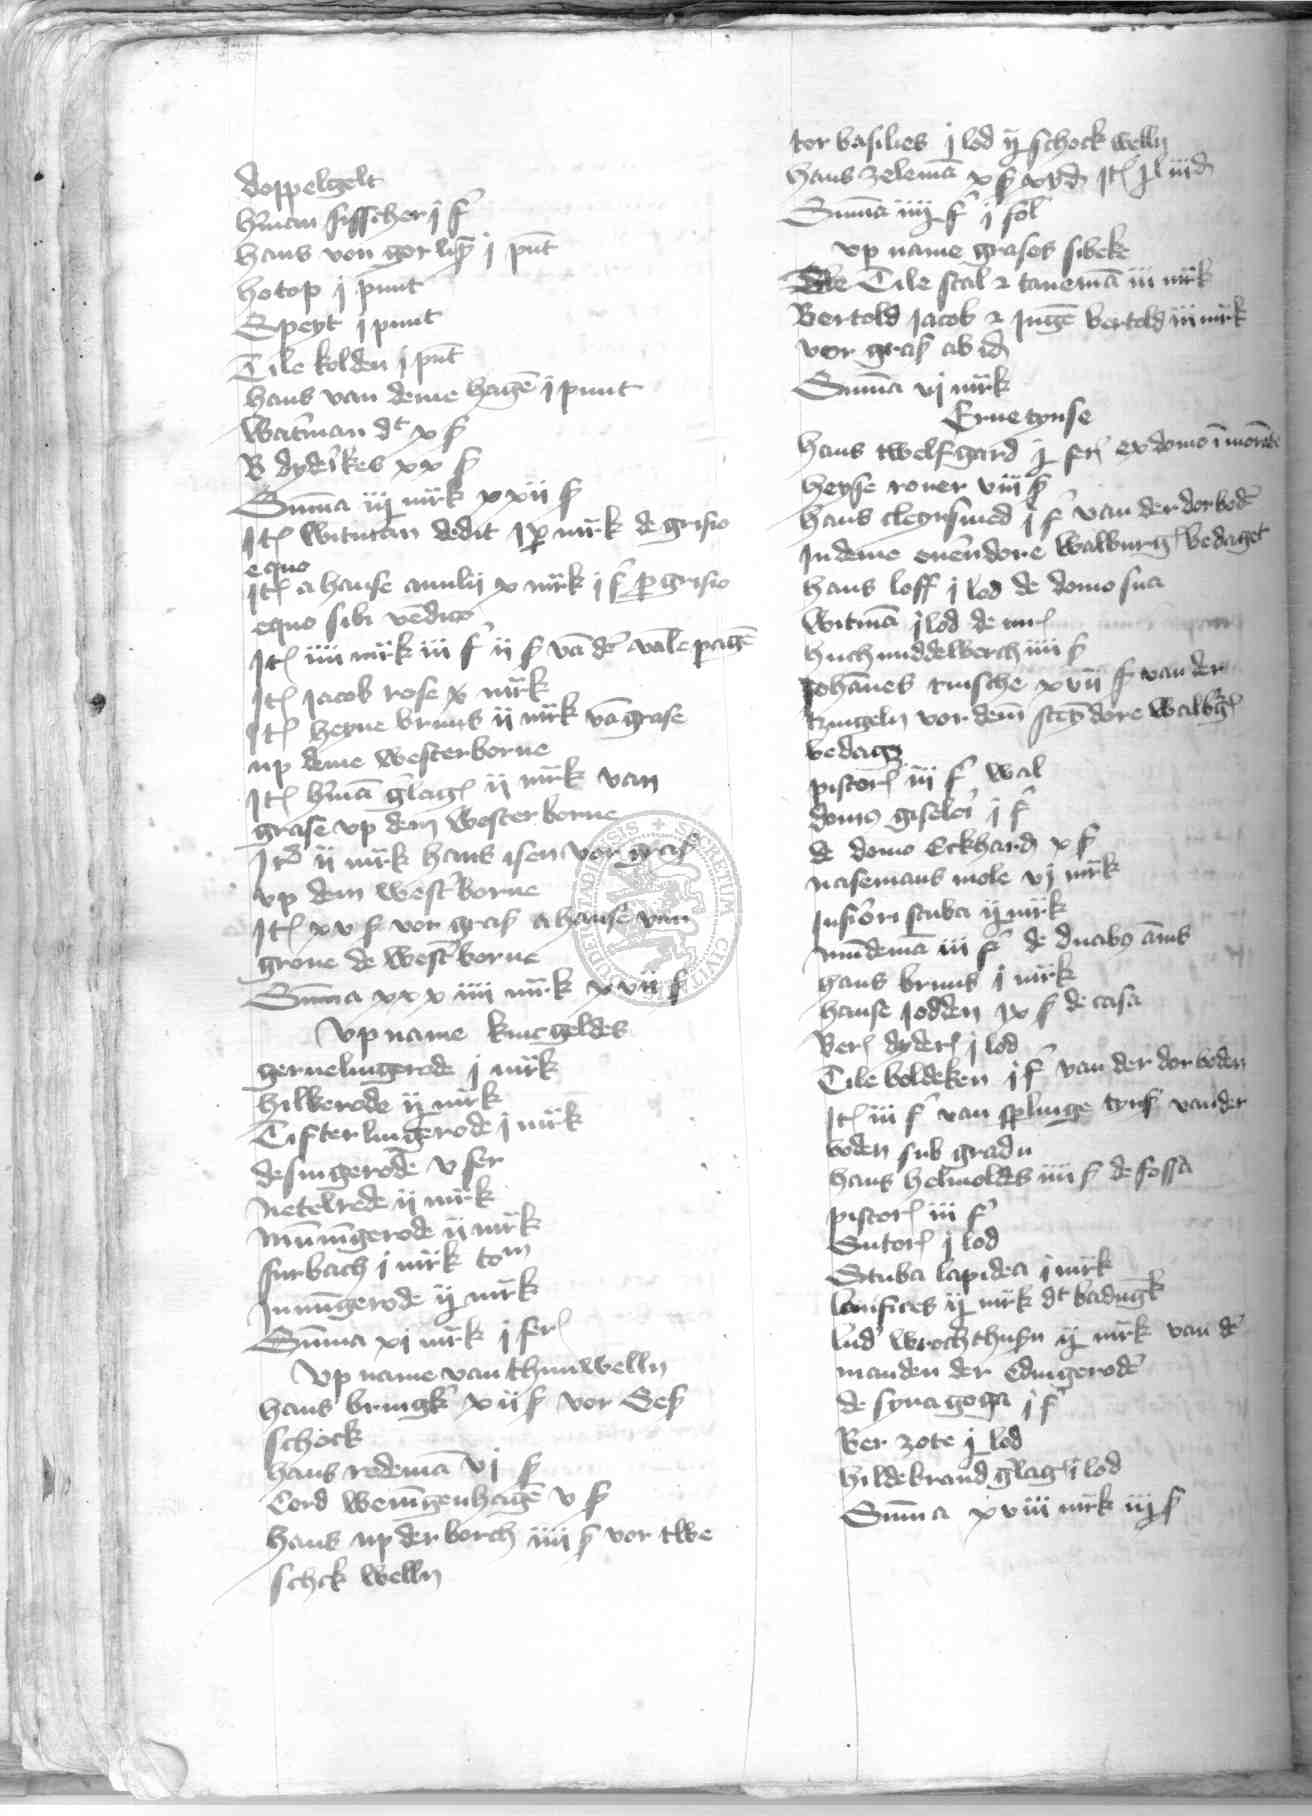 doppelgelt
h'man fisscher j f'
hans von gorlicz j punt
hotop j punt
Speyt j punt
Tile kolden j pūt
hans van deme hagē j punt
Wat'man dt x ß
B dyderikes xx ß
Sum̄a iij mrk xxii ß
It̄ witman dedit ix mrk de grisio
equo
It̄ a hanse x mrk j f' p grisio
equo sibi vēdito
It̄ iiii mrk iii f' ii ß vā d'
It̄ Jacob rose x mrk
It̄ heyne bruns ii mrk vā grase
up deme westerborne
It̄ h'mā glag' ii mrk van
grase vp dem westerborne
It̄ ii mrk hans isen vor gras
vp dem west'borne
It̄ xv ß vor gras a hanse van
grone de west'borne
Sum̄a xxxiiii mrk xvii ß
Vp name kucgeldes
gernelingerode j mrk
hilkerode ij mrk
Tifterlingerode j mrk
desingerode v fer
Netelrede ij mrk
mūnīgerode ii mrk
furbach j mrk tom
Im̄īgerode ij mrk
Sum̄a xi mrk j fer'
Vp name van thunwelln
hans bringk' xii ß vor Ses
schock
hans redemā vj ß
Cord wenīgenhagē v ß
hans up der borch iiii ß vor twe
schck welln
tor basilies j lod ij schock welln
hans zelemā x ß
Sum̄a iiij f' j sol'
vp name grases sibeke
Tile stal z tanemā iii mrk
Bertold Jacob z Jūgē bertold iii mrk
vor gras ab id'
Sum̄a vj mrk
Erue tynse
hans twelfgard j fer' ex domo
heyse rover viii ß
hans clegesmed j f' van der dorbod'
in deme ouendore walburg' bedaget
hans loff j lod de domo sua
Witmā j lod de
huch middelborch iiii ß
Johānes rusche xvii ß van der
tzingeln vor dem dore walb'g'
bedag
pistor' iii f' wal
domus giseler j f'
de domo Eckhard x ß
nasemans mole vj mrk
Inferiori stuba ij mrk
mūdemā iii f' de duabus
hans bruns j mrk
hanse Jodden ix ß de casa
Ber' dyder' j lod
Tile boldeken j f' van der dorboden
It̄ iii f' van tyns van der
boden sub gradu
hans helmoldes iiii ß de fossa
pistor' iii f'
Sutor' j lod
Stuba lapidea j mrk
lanifices ij mrk dt badugk
lud' wrochthusn ij mrk van d'
manden der Edingerod'
de synagoga j f'
Ber zote j lod
hildebrand glag' j lod
Sum̄a xviii mrk iij ß